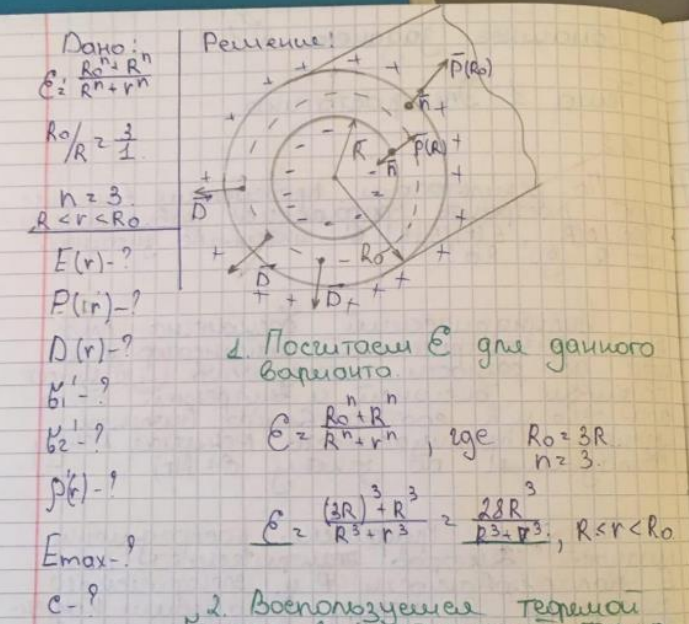 Дано:
ε = (R₀ⁿ + Rⁿ) / (Rⁿ + rⁿ)
R₀/R = 3/1
n = 3
R < r < R₀
E(r) - ?
P(r) - ?
D(r) - ?
σ₁' - ?
σ₂' - ?
ρ'(r) - ?
Emax - ?
C - ?
Решение:
P̄(R₀)
n̄
P̄(R)
n̄
R
R₀
D̄
D̄
D̄
1. Посчитаем ε для данного
варианта.
ε = (R₀ⁿ + Rⁿ) / (Rⁿ + rⁿ), где R₀ = 3R
n = 3.
ε = ((3R)³ + R³) / (R³ + r³) = 28R³ / (R³ + r³), R ≤ r < R₀
2. Воспользуемся теоремой